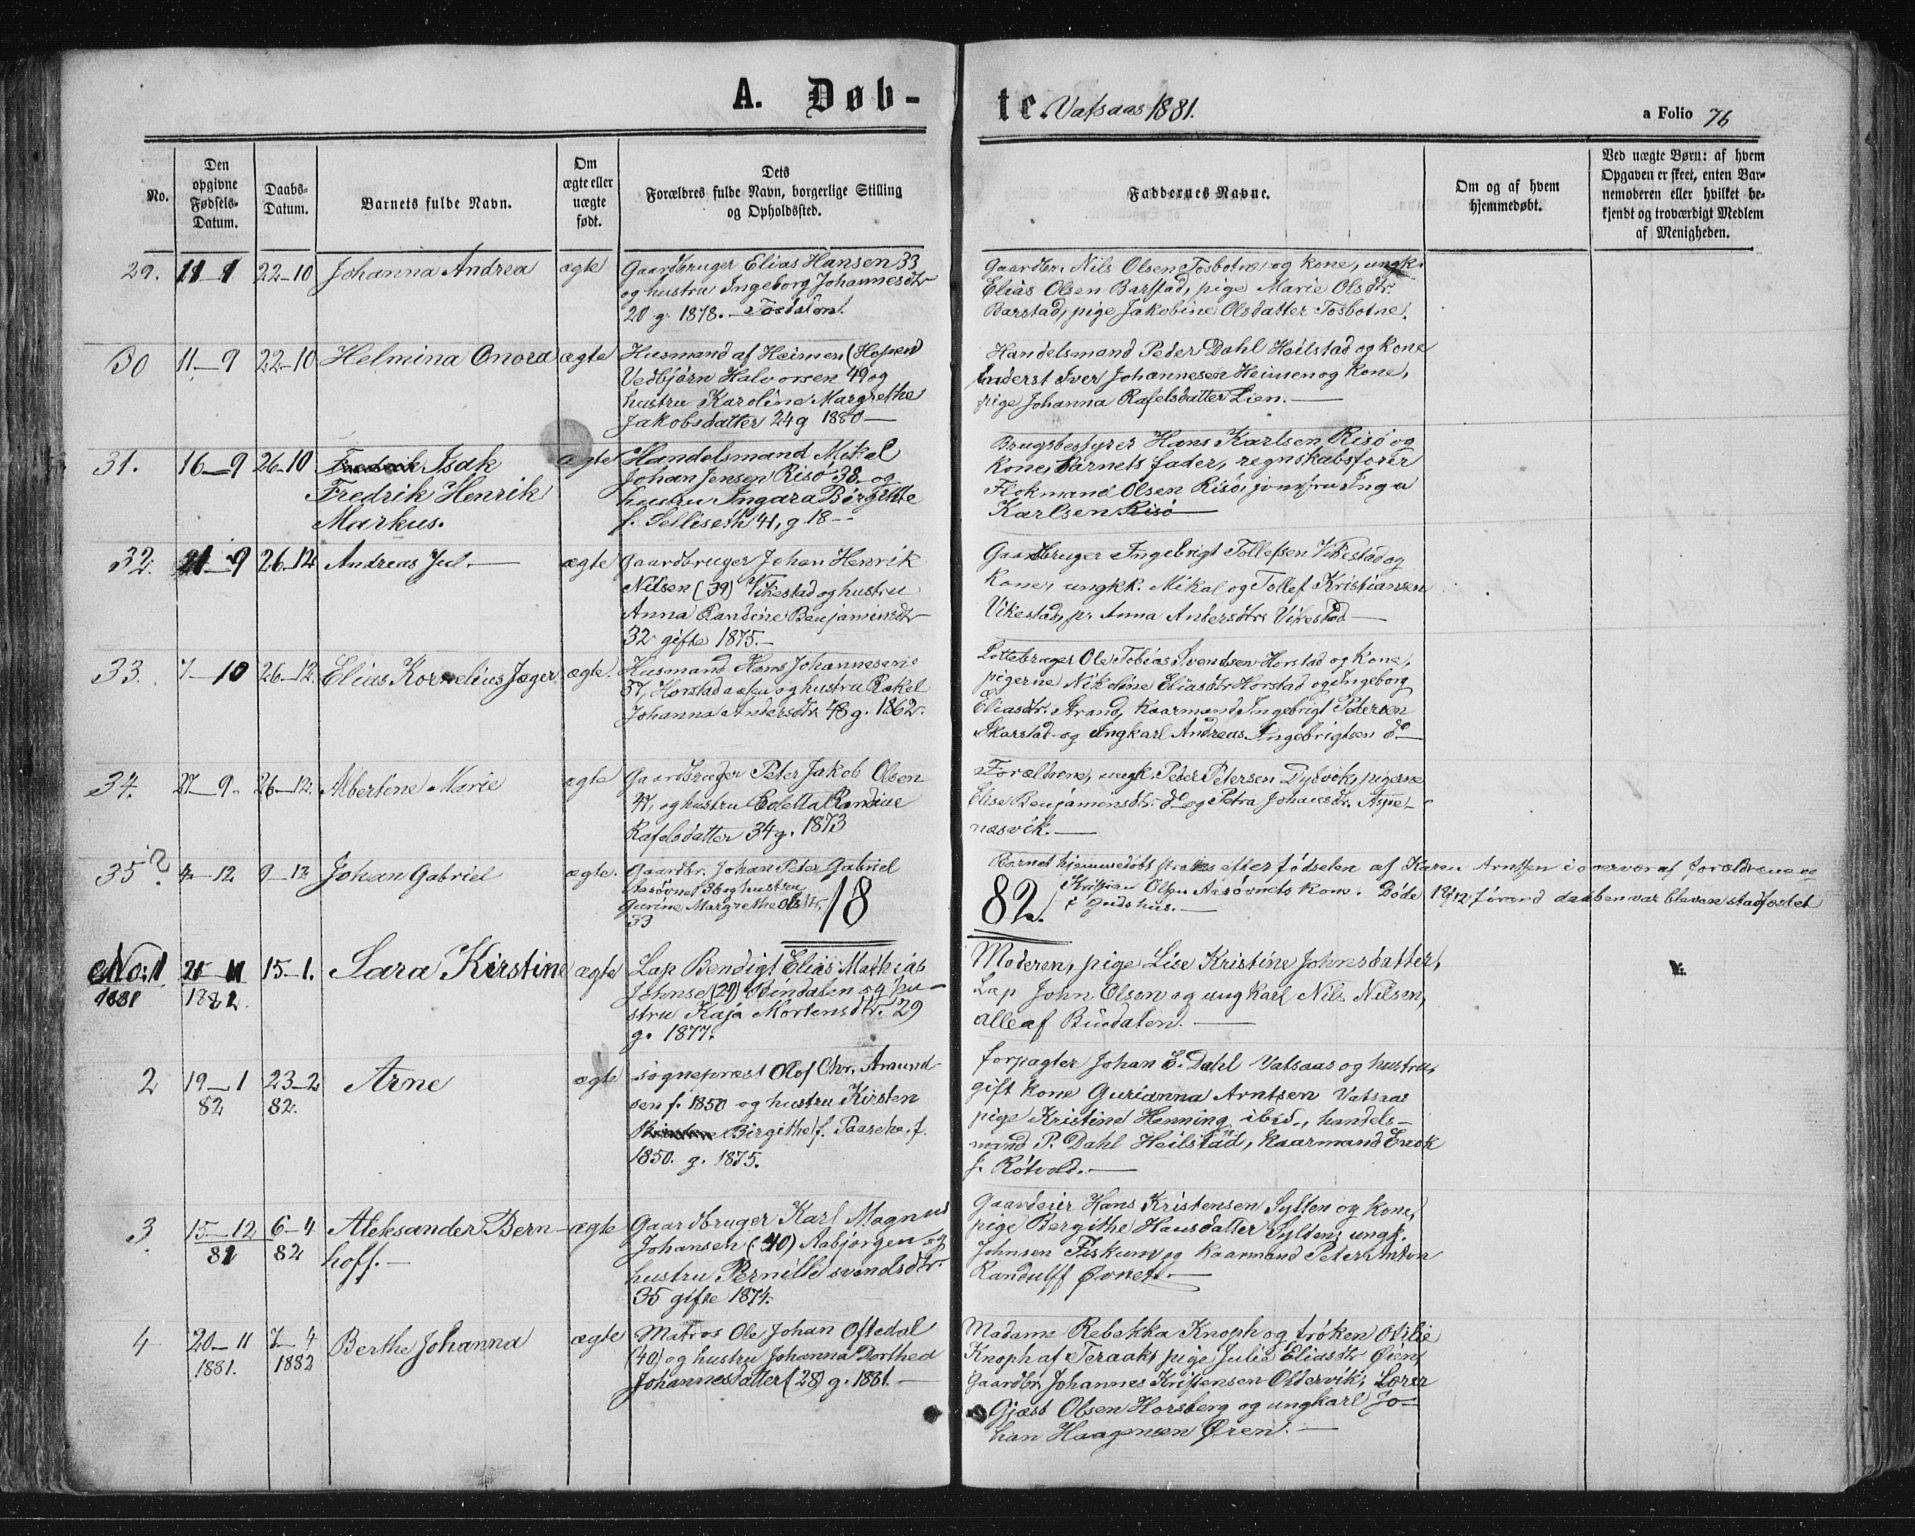 A. Døb-
te. Vatsaas 1881.
a Folio 76
No.
Den opgivne Fødsels-Datum.
Daabs-Datum.
Barnets fulde Navn.
Om ægte eller uægte født.
Dets Forældres fulde Navn, borgerlige Stilling og Opholdssted.
Faddernes Navne.
Om og af hvem hjemmedøbt.
Ved uægte Børn: af hvem Opgaven er skeet, enten Barnemoderen eller hvilket bekjendt og troværdigt Medlem af Menigheden.
29. 11-9 22-10 Johanna Andrea ægte
Gaardbruger Elias Hansen 33
og hustru Ingeborg Johannesdtr
20 g. 1878. Tosdalen.
Gaardbr. Nils Olsen Tosbotne og kone, ungk.
Elias Olsen Barstad, pige Marie Olsdtr.
Barstad, pige Jakobine Olsdatter Tosbotne.
30 11-9 22-10 Helmina Onora ægte
Husmand af Heimen (Hopen
Vedbjørn Halvorsen 49 og
hustru Karoline Margrethe
Jakobsdatter 24 g 1880
Handelsmand Peder Dahl Heilstad og kone
Inderst Iver Johannesen Heimen og kone,
pige Johanna Rafelsdatter Lien.
31. 16-9 26-10 Fredrik Isak
Fredrik Henrik
Markus.
ægte
Handelsmand Mikal
Johan Jensen Risø 38 og
hustru Ingara Birgitte
f. Selliseth 41, g. 18--
Brugsbestyrer Hans Karlsen Risø og
kone, barnets fader, regnskabsfører
Flokmand Olsen Risø, jomfru Inga
Karlsen Risø
32. 21-9 26-12 Andreas Jul. ægte
Gaardbruger Johan Henrik
Nilsen (39) Vikestad og hustru
Anna Randine Benjaminsdtr
32 gifte 1875.
Gaardbruger Ingebrigt Tollefsen Vikestad og
kone, ungkk. Mikal og Tollef Kristiansen
Vikestad, p. Anna Andersdtr Vikestad
33. 7-10 26-12. Elias Kornelius Jæger. ægte.
Husmand Hans Johannesen
57, Horstadaasen og hustru Rakel
Johanna Andersdtr. 48 g. 1862.
Lottebruger Ole Tobias Svendsen Horstad og kone,
pigerne Nikoline Eliasdtr Horstad og Ingeborg
Eliasdtr. Strand, Kaarmand Ingebrigt Petersen
Skarstad og Ungkarl Andreas Ingebrigtsen do
34. 27-9. 26-12. Albertine Marie ægte
Gaardbruger Peter Jakob Olsen
47, og hustru Edletta Randine
Rafelsdatter 34 g. 1873
Forældrene, ungk. Peter Petersen Dybvik, pigerne
Elise Benjaminsdtr. do og Petra Johansdtr. Aspe-
næsvik.
35 4-12 9-12 Johan Gabriel ægte.
Gaardbr. Johan Peter Gabriel
Aarsøvne 36 og hustru
Gurine Margrethe Olsdtr.
33
Barnet hjemmedøbt strax efter fødselen af Karen Arntsen i overvær af forældrene og
Kristian Olsen Aarsøvnets kone. Døde 19/12 førend daaben var bleven stadfæstet
i Gudshus.
18 82.
No. 1 1881 25-11 1881. 15-1. Sara Kirstine ægte
Lap Bendigt Elias Mathias
Johnse (29) Bindalen og hu-
stru Kaja Mortensdtr. 29
g. 1877.
Moderen, pige Lise Kristine Johnsdatter,
Lap John Olsen og ungkarl Nils Nilsen,
alle af Bindalen.
2 19-1 82 23-2 82. Arne ægte
sognepræst Olof Chr. Amund-
sen f. 1850 og hustru Kirsten
Birgithe f. Paaske, f.
1850. g. 1875.
forpagter Johan E. Dahl Vatsaas og hustru,
gift kone Gurianna Arntsen Vatsaas
pige Kristine Henning ibid., handels-
mand P. Dahl Heilstad, Kaarmand Enok
J. Røtvold.
3. 15-12 81 6-4 82 Aleksander Bern-
hoff.
ægte
Gaardbruger Karl Magnus
Johansen (40) Aabjørgen og
hustru Pernille Svendsdtr.
35 gifte 1874.
Gaardeier Hans Kristensen Sylten og kone,
pige Bergithe Hansdatter Sylten, ungk.
Johnsen Fiskum og Kaarmand Peter Anton
Randulff Øvnet.
4 20-11 1881. 7-4 1882 Berthe Johanna ægte
Matros Ole Johan Oftedal
(40) og hustru Johanna Dorthea
Johannesdatter (28) g. 1881.
Madame Rebekka Knoph og frøken Otilie
Knoph af Teraak, pige Julie Eliasdtr Øien,
Gaardbr. Johannes Kristensen Oldervik, Lærer
Gjæst Olsen Horsberg og ungkarl Jo-
han Haagensen Øren.